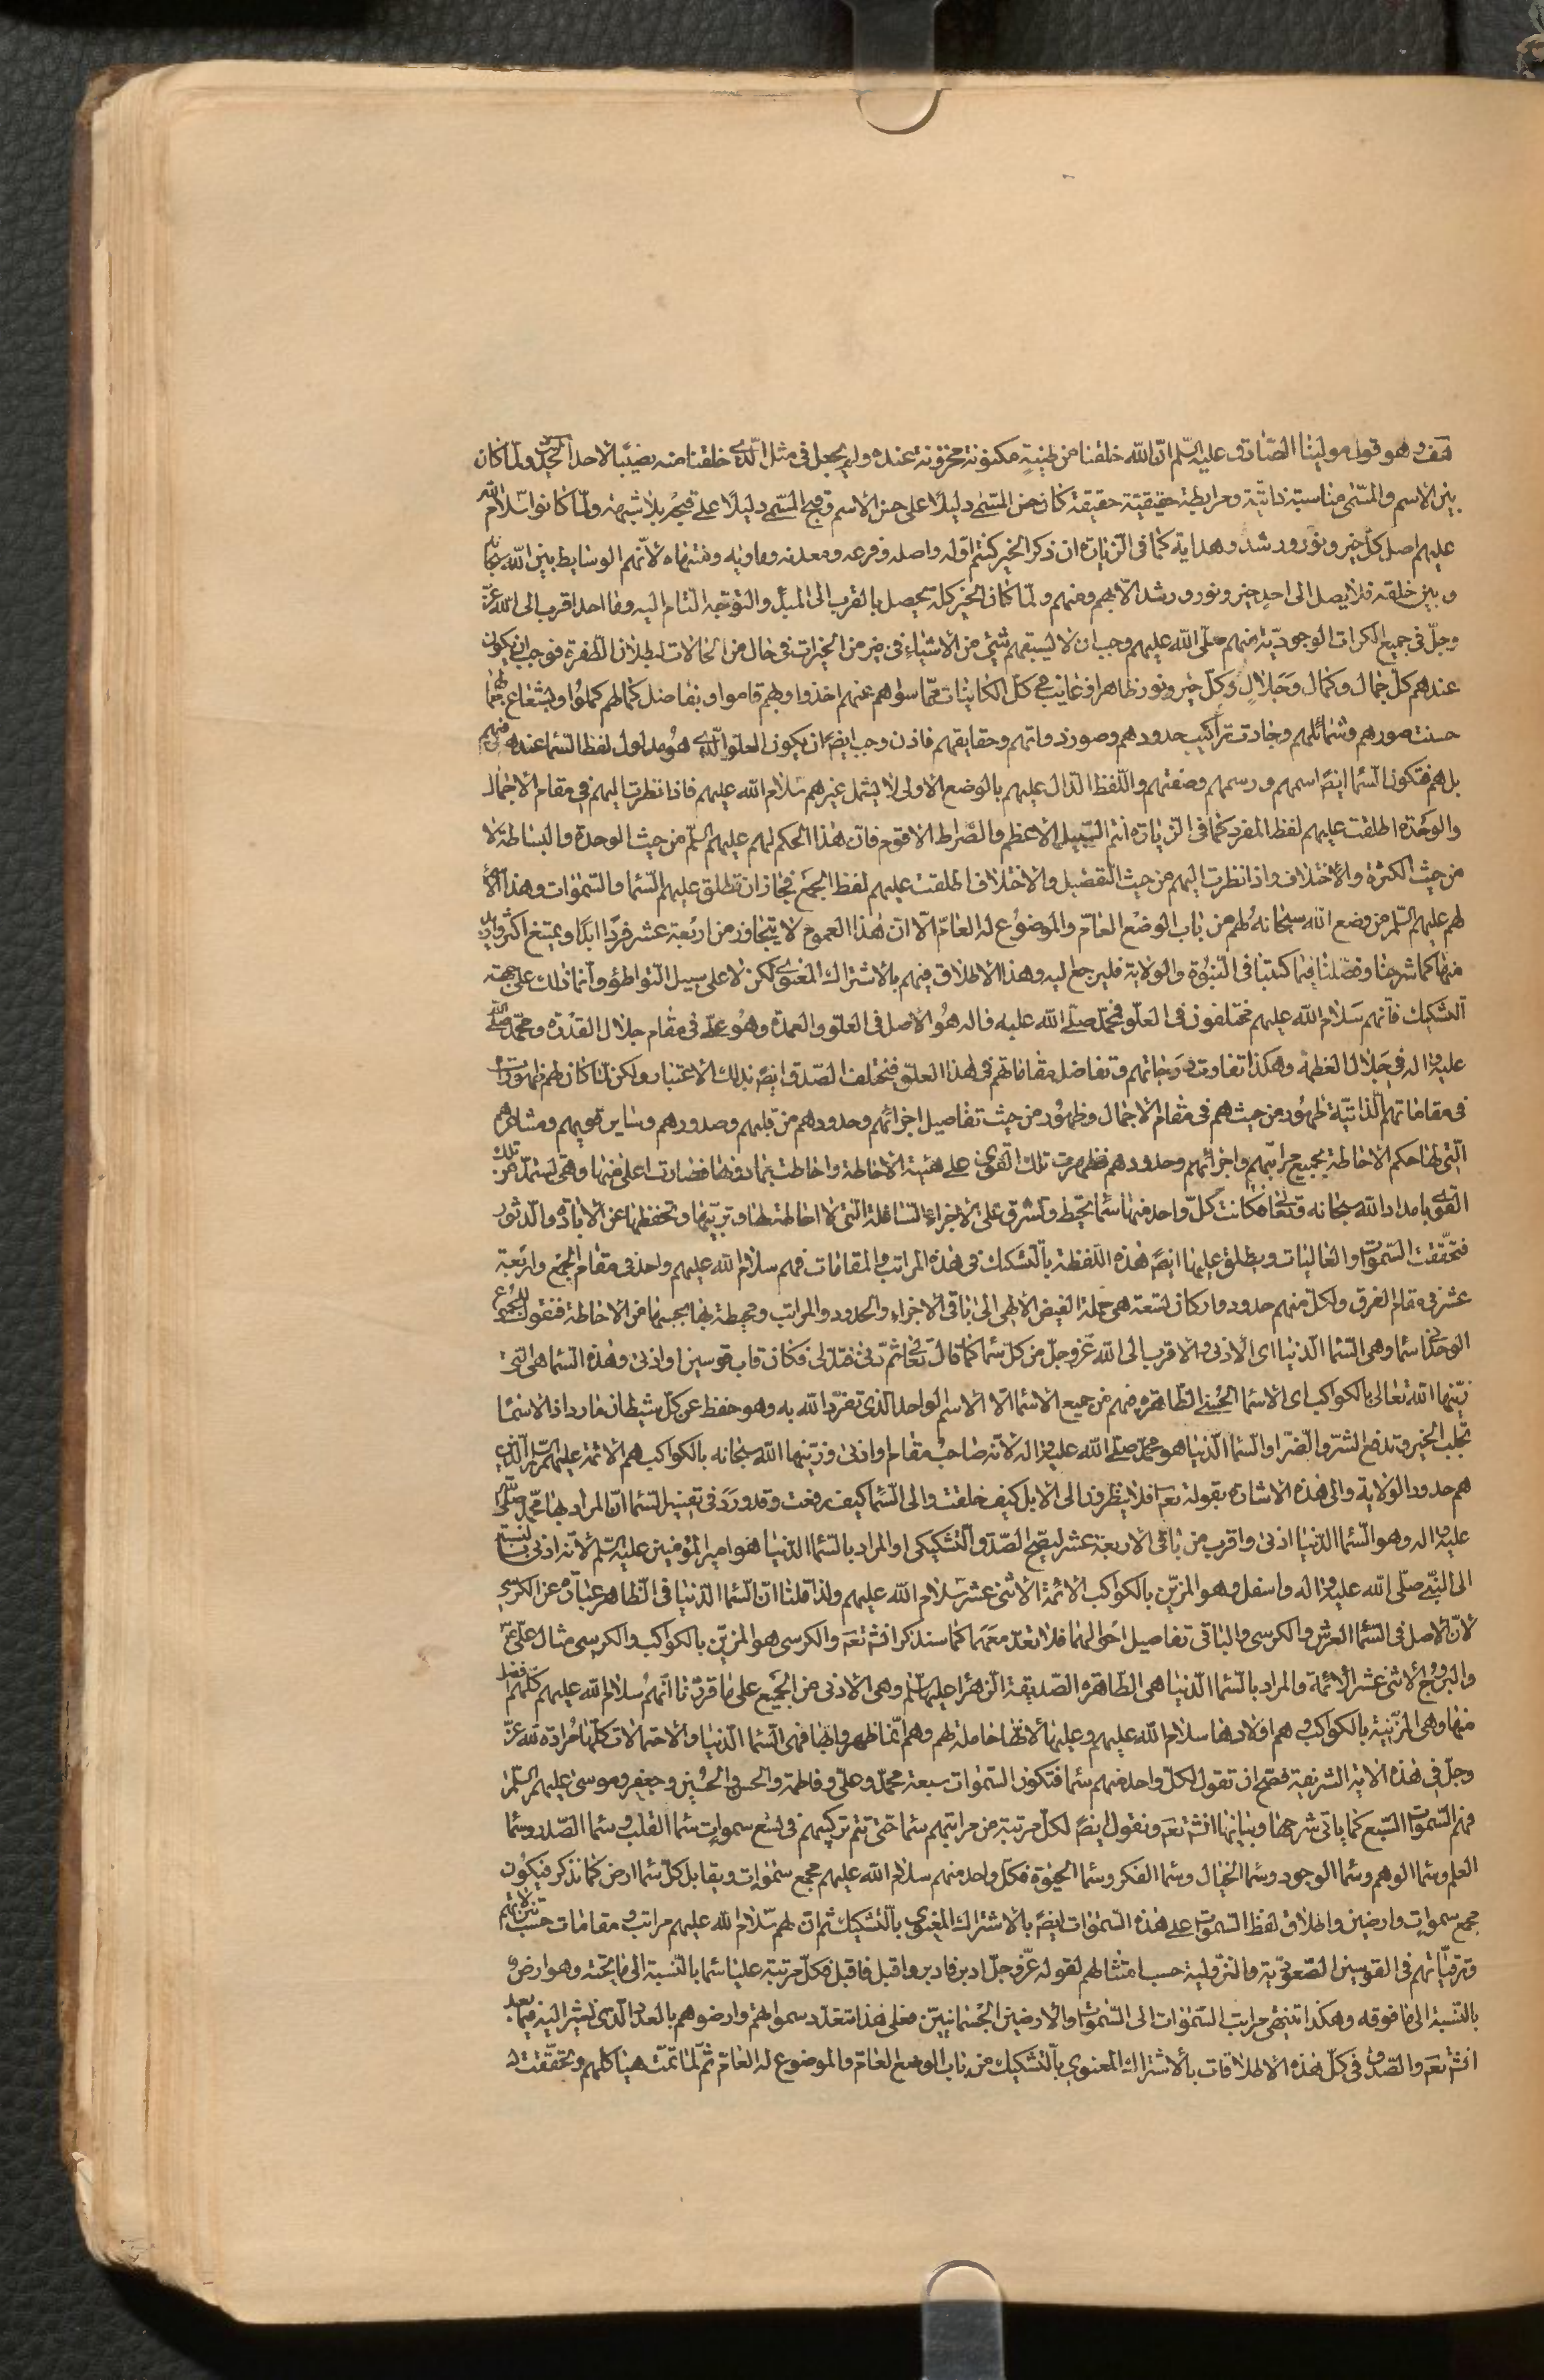 هف وهو قول مولينا الصّادق عليه السّلم انّ الله خلقنا من طينةٍ مكنونة مخزونة عنده ولم يجعل فى مثل الّذى خلقنا منه نصيبًا لاحد الحديث ولمّا كان
بين الاسم والمسّمى مناسبة ذاتيّة ومرابطة حقيقيّة حقيقة كان حسن المسّمى دليلاً على حسن الاسم وقبح المسّمى دليلاً على قبحه بلا شبهة ولمّا كانوا سلام الله
عليهم اصل كلّ خير ونور ورشد وهداية كما فى الزيارة ان ذكر الخير كنتم اوّله واصله وفرعه ومعدنه وماويه ومنتهاه لانّهم الوسايط بين الله سبحانه
وبين خلقه فلا يصل الى احدٍ خير ونور ورشد الّا بهم ومنهم ولمّا كان الخير كلّه يحصل بالقرب الى المبدأ والتوجّه التام اليه وما احد اقرب الى الله عزّ
وجلّ فى جميع الكرات الوجوديّة منهم صلّى الله عليهم وجب ان لا يسبقهم شئ من الاشياء فى خير من الخيرات فى حال من الحالات لبطلان الطّفرة فوجب ان يكون
عندهم كلّ جمال وكمال وجلالٍ وكلّ خير ونور ظاهر او غايب فى كلّ الكاينات ممّا سواهم عنهم اخذوا وبهم قاموا وبفاضل كمالهم كملوا وبشعاع جمالهم
حسنت صورهم وشمائلهم وجادت تراكيب حدودهم وصور ذواتهم وحقايقهم فاذن وجب ايضًا ان يكون العلو الّذى هو مدلول لفظ السّماء عندهم ومنهم
بل هم فتكون السّما ايضًا اسمهم ورسمهم وصفتهم واللّفظ الدّال عليهم بالوضع الاولى لا يشمل غيرهم سلام الله عليهم فاذا نظرت اليهم فى مقام الاجمال
والوحدة اطلقت عليهم لفظ المفرد كما فى الزيارة انتم السّبيل الاعظم والصّراط الاقوم فان هذا الحكم لهم عليهم السّلم من حيث الوحدة والبساطة لا
من حيث الكثرة والاختلاف واذا نظرت اليهم من حيث التفصيل والاختلاف اطلقت عليهم لفظ الجمع فجاز ان تطلق عليهم السّما والسّموات وهذا
لهم عليهم السّلم من وضع الله سبحانه لهم من باب الوضع العامّ والموضوع له العامّ الّا ان هذا العموم لا يتجاوز من اربعة عشر فردًا ابدًا ويمتنع اكثر
منها كما شرحنا وفصّلنا فيما كتبنا فى النبوّة والولاية فليرجع اليه وهذا الاطلاق فيهم بالاشتراك المعنوى لكن لا على سبيل التواطؤ وانّما ذلك على جهة
التشكيك فانهم سلام الله عليهم مختلفون فى العلّو فمحمّد صلّى الله عليه واله هو الاصل فى العلوّ والعمدة وهو علىّ فى مقام جلال القدرة ومحمّد صلّى الله
عليه واله فى جلال العظمة وهكذا تفاوت درجاتهم وتفاضل مقاماتهم فى هذا العلّو فيختلف الصّدق ايضً بذلك الاعتبار ولكن لمّا كان لهم ظهورات
فى مقاماتهم الّذاتيّة ظهور من حيث هم فى مقام الاجمال وظهور من حيث تفاصيل اجزائهم وحدودهم من قلبهم وصدورهم وساير قويهم ومشاعرهم
الّتى لها حكم الاحاطة بجميع مراتبهم واجزائهم وحدودهم فظهرت تلك القوى على هيئة الاحاطة واحاطت بما دونها فصارت اعلى منها وهى تستمدّ من تلك
القوى بامداد الله سبحانه وتعالى فكانت كلّ واحد منها سماء تحيط وتشرق على الاجزاء السّافلة الّتى لا احاطة لها وتربّيها وتحفظها عن الابادة والدّثور
فتحقّقت السّموات والعاليات ويطلق عليها ايضً هذه اللّفظة بالتشكيك فى هذه المراتب والمقامات فهم سلام الله عليهم واحد فى مقام الجمع واربعة
عشر فى مقام الفرق ولكلّ منهم حدود واركان تسعة هى حملة الفيض الالهى الى باقى الاجزاء والحدود والمراتب ومحيطة بها بحسبها من الاحاطة فنقول للمجموع
الوحدانى سما وهى السّما الدّنيا اى الادنى والاقرب الى الله عزّوجلّ من كلّ سما كما قال تعالى ثم دنى فتدلى فكان قاب قوسين او ادنى وهذه السّما هى الّتى
زيّنها الله تعالى بالكواكب اى الاسما الحسنى الظّاهرة منهم من جميع الاسما الّا الاسم الواحد الّذى تفرّد الله به وهو حفظ عن كلّ شيطان مارد اذ الاسما
تجلب الخير وتدفع الشّر والضّر او السّما الدّنيا هو محمّد صلّى الله عليه واله لانّه صاحب مقام او ادنى وزيّنها الله سبحانه بالكواكب هم الائمّة عليهم السّلم الّذين
هم حدود الولاية والى هذه الاشارة بقوله تعَ افلا ينظرون الى الابل كيف خلقت والى السّما كيف رفعت وقد ورد فى تفسير السّما انّ المراد بها محمّد صلّى الله
عليه واله وهو السّما الدّنيا ادنى واقرب من باقى الاربعة عشر ليصحّ الصّدق التّشكيكى او المراد بالسّما الدّنيا هو امير المؤمنين عليه السّلم لانّه ادنى بالنسبة
الى النّبى صلّى الله عليه واله واسفل وهو المزيّن بالكواكب الائمّة الاثنى عشر سلام الله عليهم ولذا قلنا انّ السّما الدّنيا فى الظّاهر عبارة عن الكرسى
لانّ الاصل فى السّما العرش والكرسى والباقى تفاصيل احوالهما فلا تعدّ معهما كما سنذكر انشَ تعَ والكرسى هو المزيّن بالكواكب والكرسى مثال علىّ عَ
والبروج الاثنى عشر الائمّة والمراد بالسّما الدّنيا هى الطّاهره الصّديقة الزهراء عليها السّلم وهى الادنى من الجميع على ما قرّرنا انّهم سلام الله عليهم كلّهم افضل
منها وهى المزيّنة بالكواكب وهم اولادها سلام الله عليهم وعليها لانّها حاملة لهم وهم انّما ظهروا بها فهى السّما الدّنيا والاحتمالات كلّها مرادة لله عزّ
وجلّ فى هذه الاية الشريفة فصّح ان تقول لكلّ واحد منهم سما فتكون السّموات سبعة محمّد وعلىّ وفاطمة والحسن والحسين وجعفر وموسى عليهم السّلم
فهم السّموات السّبع كما ياتى شرحها وبيانها انشَ تعَ ونقول ايضً لكلّ مرتبة من مراتبهم سما حتى تتم تركيبهم فى تسع سموات سما القلب وسما الصّدر وسما
العلم وسما الوهم وسما الوجود وسما الخيال وسما الفكر وسما الحيوة فكلّ واحد منهم سلام الله عليهم مجمع سموات ويقابل كلّ سما ارض كما نذكر فيكون
مجمع سموات وارضين واطلاق لفظ السّموات على هذه السّموات ايضً بالاشتراك المعنوى بالتشكيك ثم ان لهم سلام الله عليهم مراتب ومقامات حسب تنزلاتهم
وترقيّاتهم فى القوسين الصّعوديّة والنزّوليّة حسب امتثالهم لقوله عزّوجلّ ادبر فادبر واقبل فاقبل فكلّ مرتبة عليا سما بالنّسبة الى ما تحته وهو ارض و
بالنّسبة الى ما فوقه وهكذا تنتهى مراتب السّموات الى السّموات والارضين الجسمانيّين فعلى هذا تتعدّد سمواتهم وارضوهم بالعدد الّذى نشير اليه فيما بعد
انشَ تعَ والصّدق فى كلّ هذه الاطلاقات بالاشتراك المعنوي بالتّشكيك من باب الوضع العامّ والموضوع له العامّ ثم لمّا تمّت هياكلهم وتحقّقت